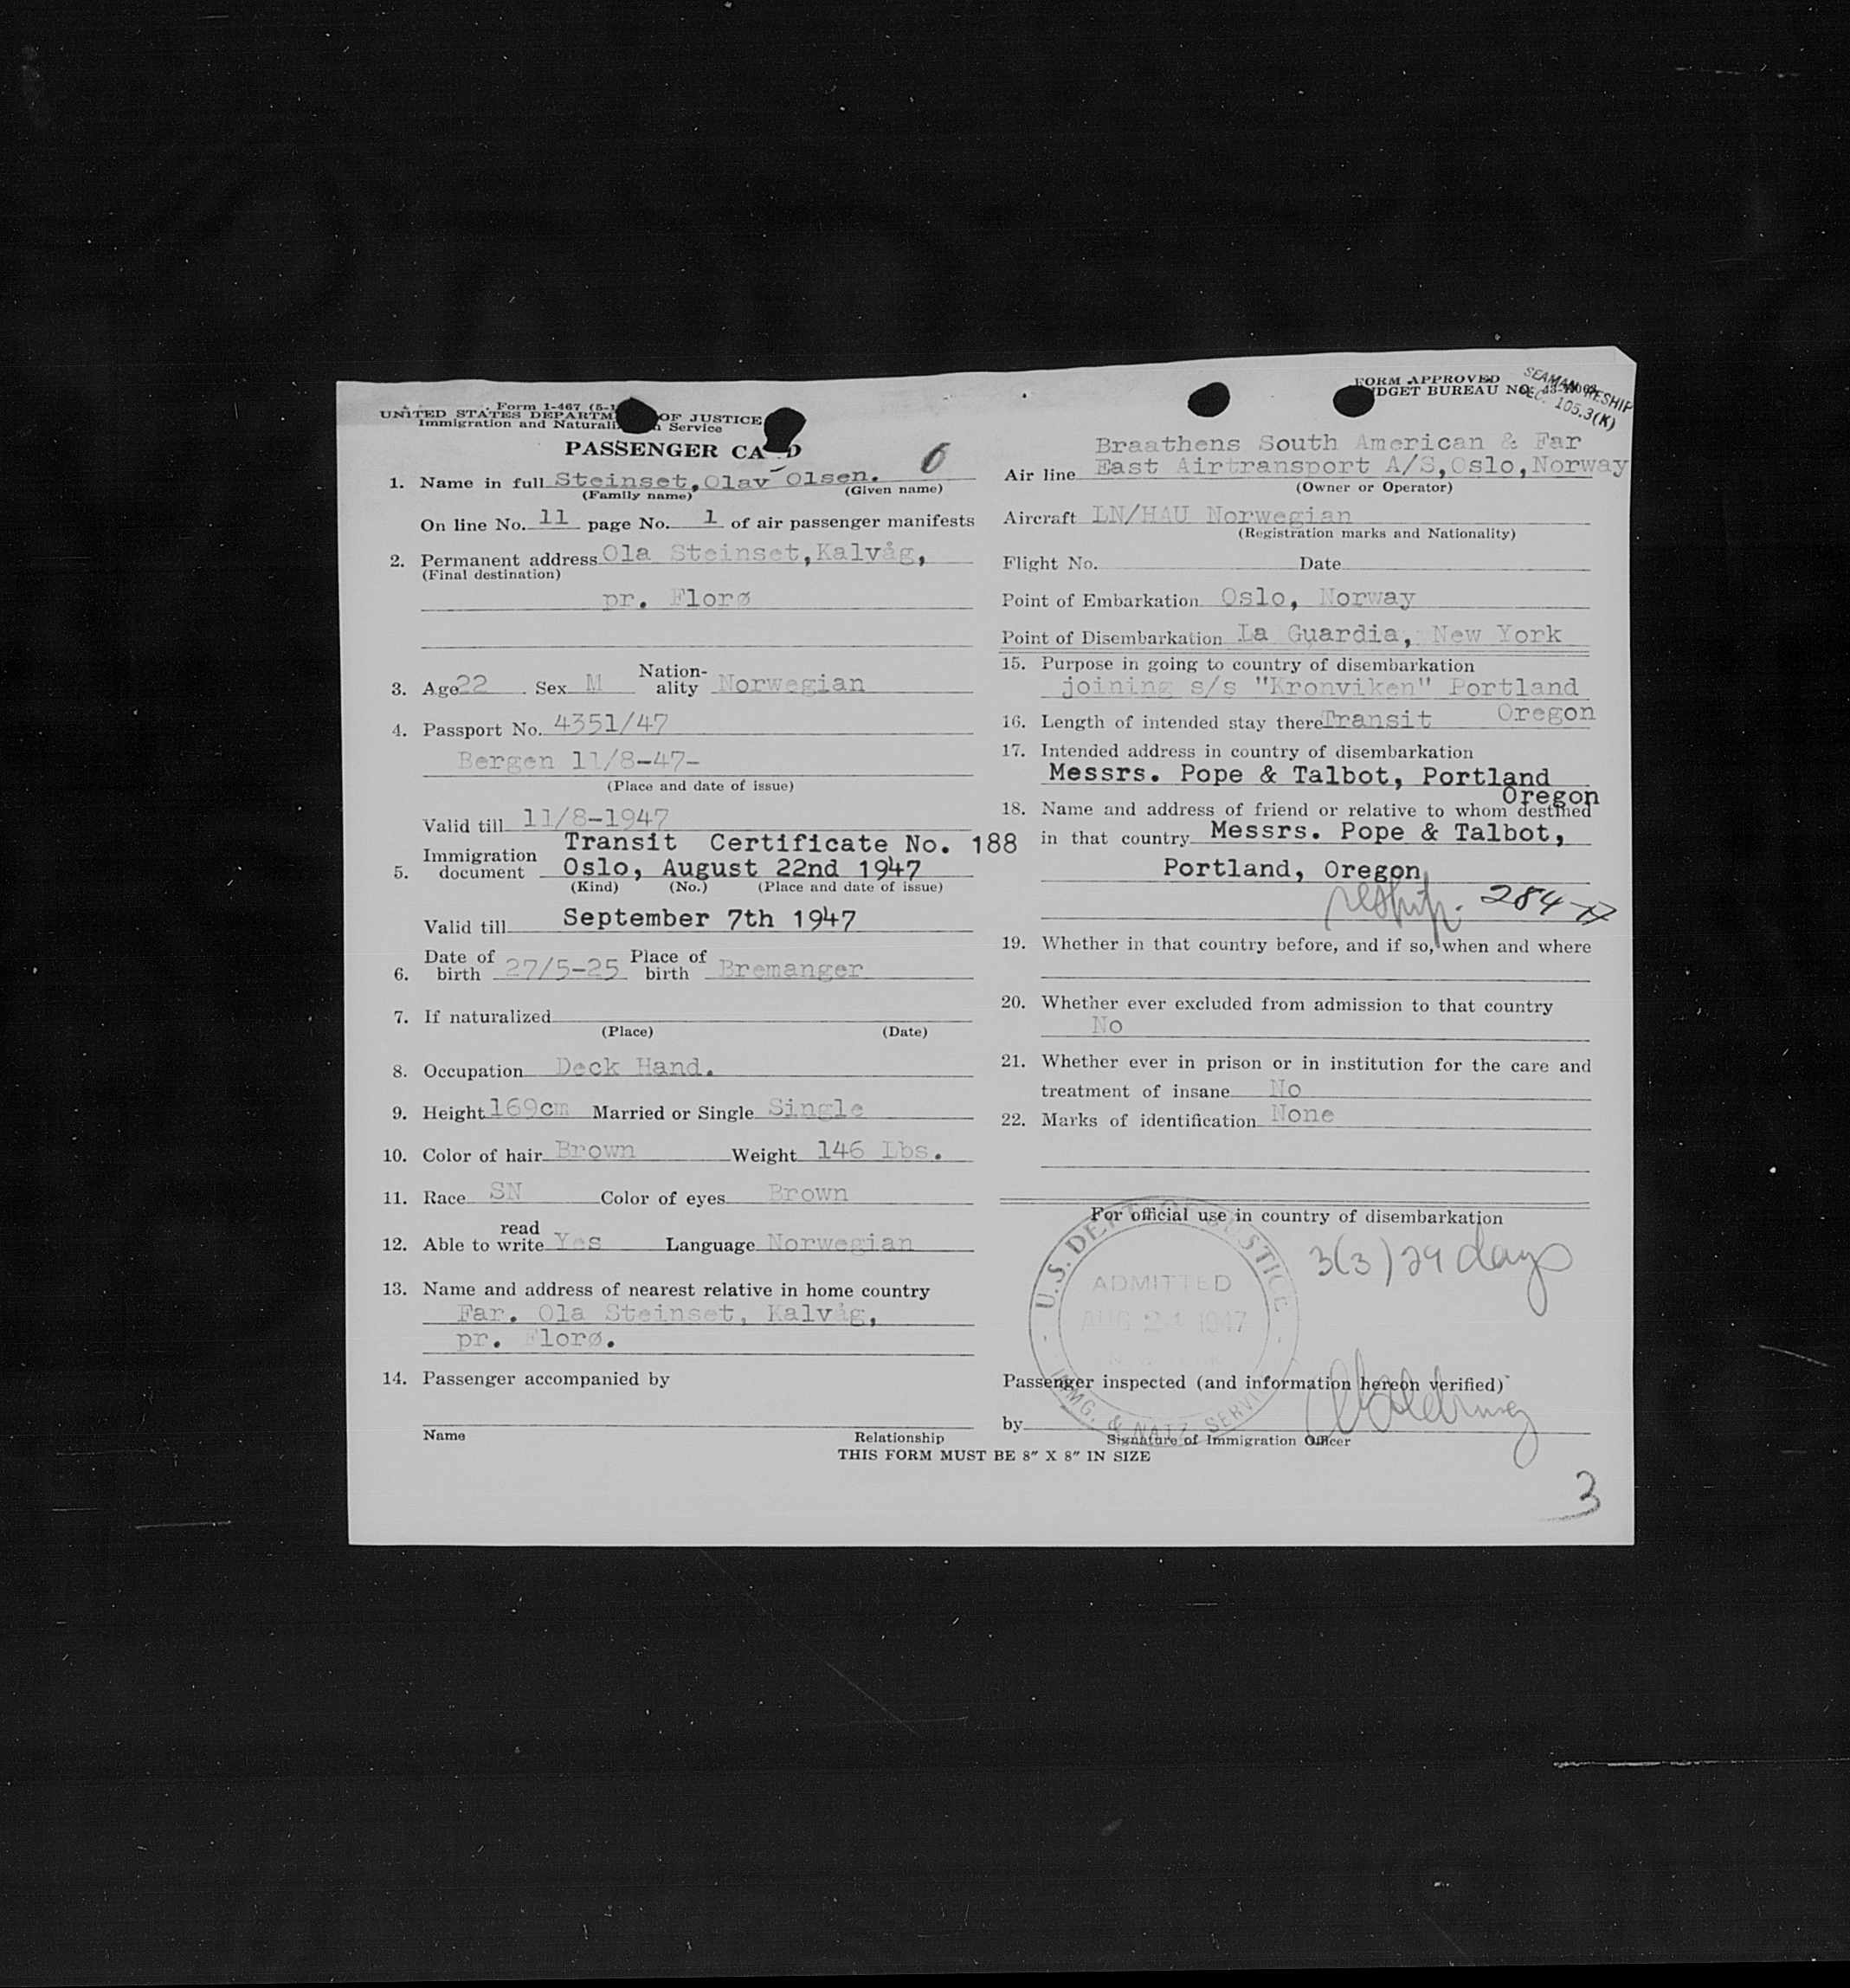 Form 1-467 (5-1
UNITED STATES DEPARTM OF JUSTICE
Immigration and Naturali n Service
PASSENGER CA D
6
1. Name in full Steinset, Olav Olsen.
(Family name) (Given name)
On line No. 11 page No. 1 of air passenger manifests
2. Permanent address Ola Steinset, Kalvåg,
(Final destination)
pr. Florø
3. Age 22 Sex M Nation-
ality Norwegian
4. Passport No. 4351/47
Bergen 11/8-47-
(Place and date of issue)
Valid till 11/8-1947
Transit Certificate No. 188
5. Immigration
document Oslo, August 22nd 1947
(Kind) (No.) (Place and date of issue)
Valid till September 7th 1947
6. Date of
birth 27/5-25 Place of
birth Bremanger
7. If naturalized
(Place) (Date)
8. Occupation Deck Hand.
9. Height 169cm Married or Single Single
10. Color of hair Brown Weight 146 Lbs.
11. Race SN Color of eyes Brown
12. Able to read
write Yes Language Norwegian
13. Name and address of nearest relative in home country
Far. Ola Steinset, Kalvåg,
pr. Florø.
14. Passenger accompanied by
Name Relationship
THIS FORM MUST BE 8" X 8" IN SIZE
FORM APPROVED
DGET BUREAU NO.
SEAMAN RESHIP
SEC. 105.3(K)
Braathens South American & Far
Air line East Airtransport A/S, Oslo, Norway
(Owner or Operator)
Aircraft LN/HAU Norwegian
(Registration marks and Nationality)
Flight No. Date
Point of Embarkation Oslo, Norway
Point of Disembarkation La Guardia, New York
15. Purpose in going to country of disembarkation
joining s/s "Kronviken" Portland
Oregon
16. Length of intended stay there Transit
17. Intended address in country of disembarkation
Messrs. Pope & Talbot, Portland
Oregon
18. Name and address of friend or relative to whom destined
in that country Messrs. Pope & Talbot,
Portland, Oregon
reship. 284
19. Whether in that country before, and if so, when and where
20. Whether ever excluded from admission to that country
No
21. Whether ever in prison or in institution for the care and
treatment of insane No
22. Marks of identification None
For official use in country of disembarkation
3(3) 29 days
U.S. DEPT. OF JUSTICE
ADMITTED
AUG 24 1947
IMMG. & NATZ. SERVICE
Passenger inspected (and information hereon verified)
by
Signature of Immigration Officer
3